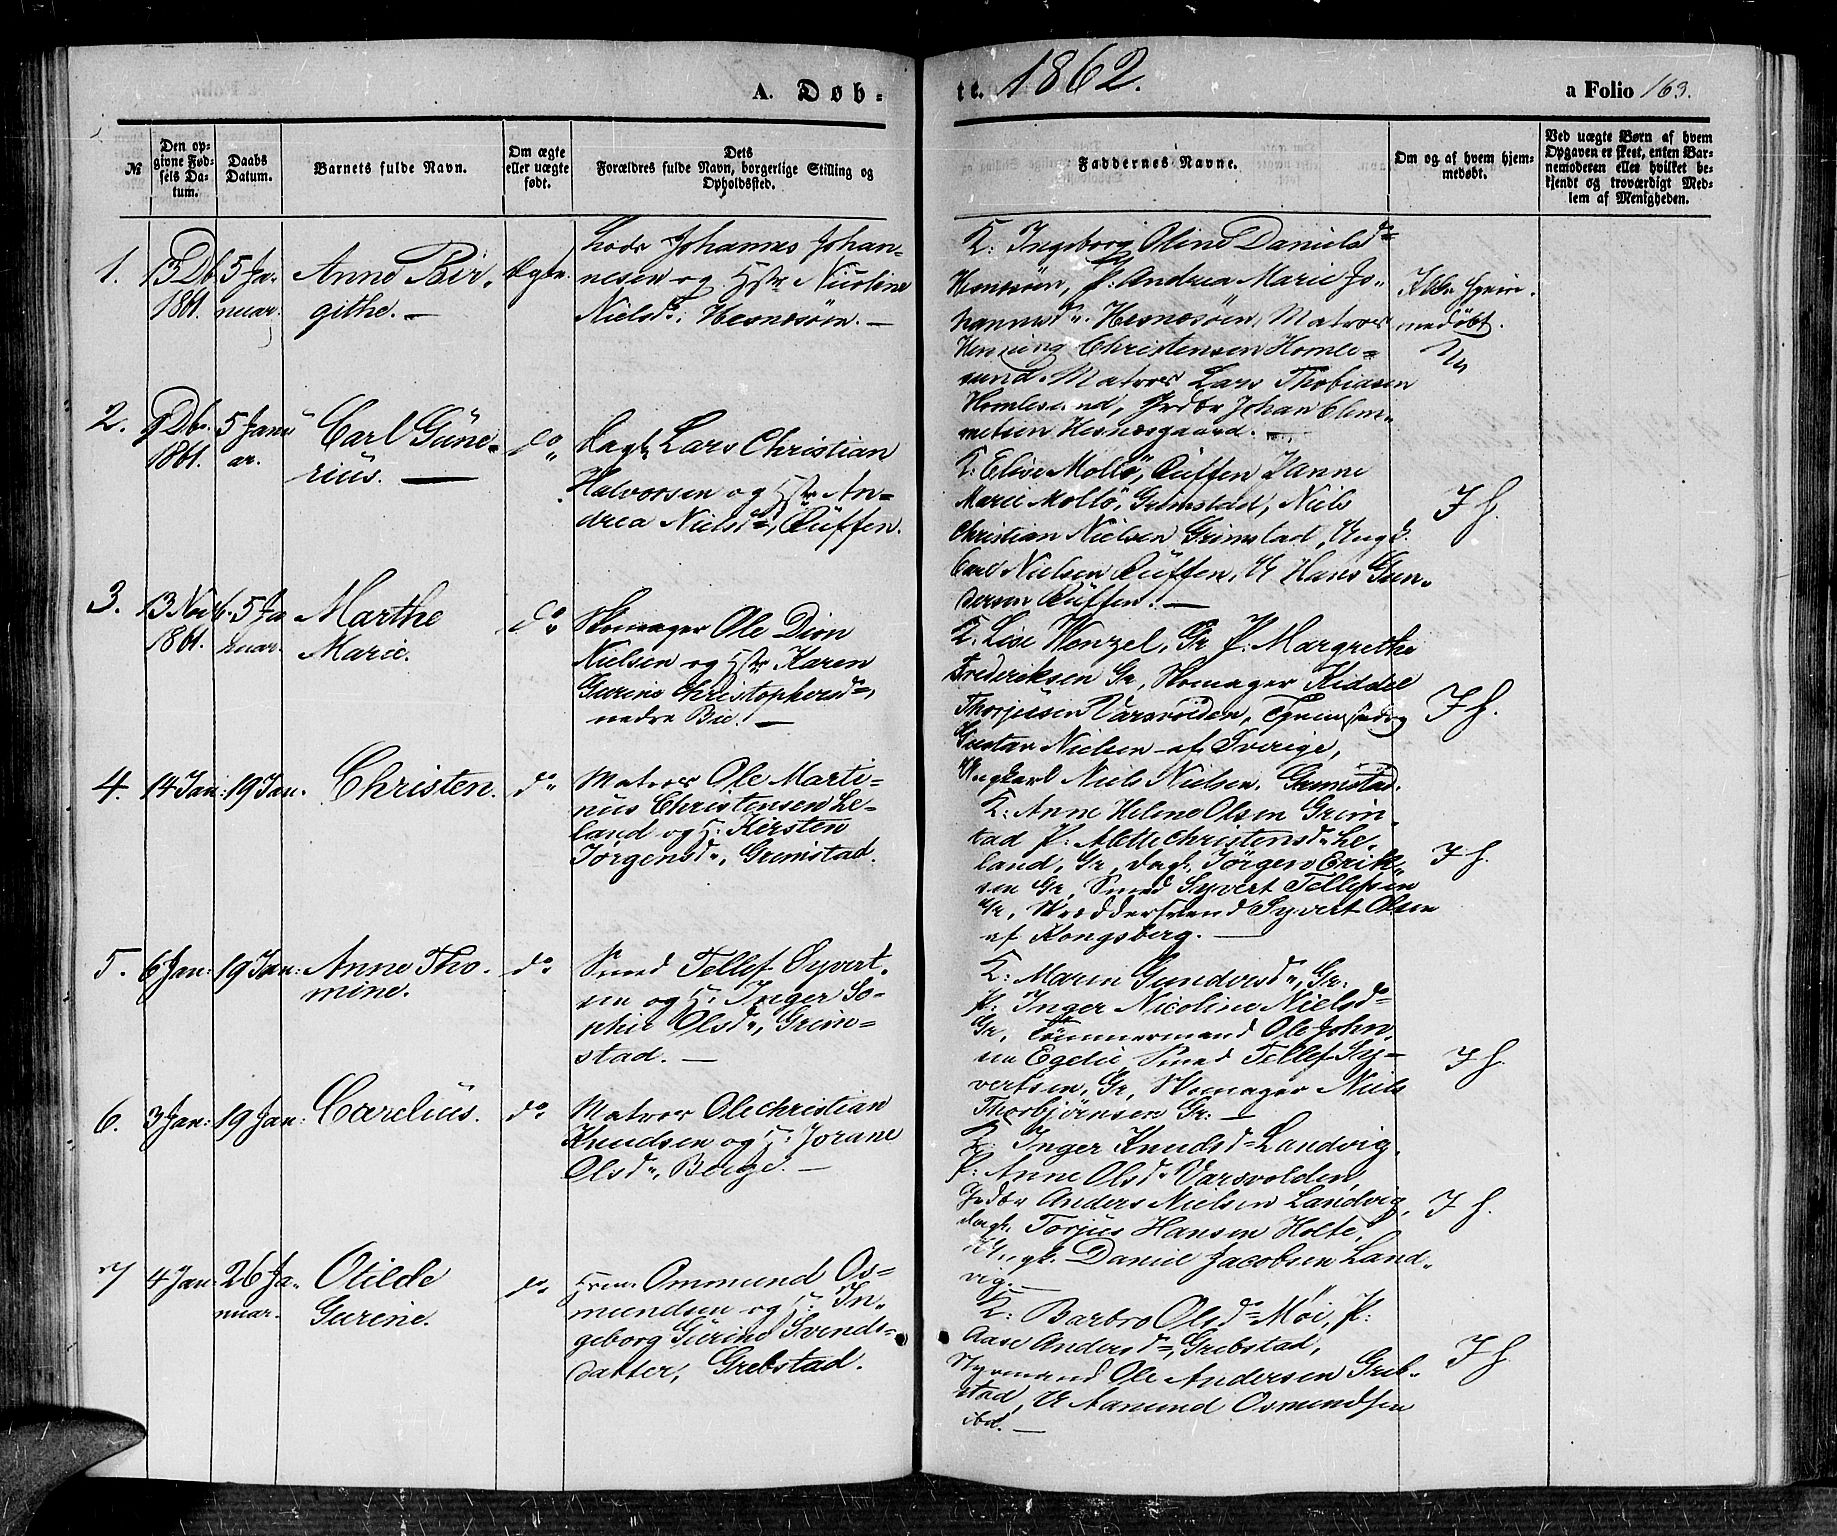 A. Døb-
te. 1862.
a Folio 163.
№
Den op-
givne Fød-
sels Da-
tum.
Daabs
Datum.
Barnets fulde Navn.
Om ægte
eller uægte
født.
Dets
Forældres fulde Navn, borgerlige Stilling og
Opholdssted.
Faddernes Navne.
Om og af hvem hjem-
medøbt.
Ved uægte Børn af hvem
Opgaven er skeet, enten Bar-
nemoderen eller hvilket be-
kjendt og troværdigt Med-
lem af Menigheden.
1.
13 Db.
1861.
5 Ja-
nuar.
Anne Bir-
githe. —
Ægte.
Lods Johannes Johan-
nesen og Hstr Nicoline
Nielsd: Hesnesøen. —
K: Ingeborg Oline Danielsd
Hesnesøen, P: Andrea Marie Jo-
hannesd. Hesnesøen, Matros
Henning Christensen Homle-
sund. Matros Lars Thobiasen
Homlesund, Grdbr Johan Clem-
metsen Hesnesgaard. —
Ikke hjem-
medøbt.
2.
9 Db.
1861.
5 Janu-
ar.
Carl Gune-
rius. —
do
Dagl. Lars Christian
Halvorsen og Hstr An-
drea Nielsd, Rüffen.
K: Elise Mollö, Rüffen, Janne
Marie Mollö, Grimstad, Niels
Christian Nielsen Grimstad, Ungk.
Carl Nielsen Rüffen, U Hans Gun-
dersen Rüffen. —
I h.
3.
13 Novb.
1861.
5 Ja
nuar.
Marthe
Marie.
do
Skomager Ole Dion
Nielsen og Hstr Karen
Gurine Christophersd,
nedre Bie. —
K: Lise Wenzel, Gr P: Margrethe
Frederiksen Gr, Skomager Kiddel
Thorjussen Varsvolden,
Gustav Nielsen af Sverige,
Ungkarl Niels Nielsen, Grimstad.
I h.
4.
14 Jan:
19 Jan.
Christen.
do
Matros Ole Marti-
nus Christensen Le-
land og H: Kirsten
Jørgensd, Grimstad.
K: Anne Helene Olsen Grim-
stad P: Mette Christensd Le-
land, Gr, Dagl. Jörgen Erik-
sen Gr, Smed Syvert Tellefsen
Gr, Skræddersvend Syvert Olsen
af Kongsberg. —
I h.
5.
6 Jan:
19 Jan:
Anne Tho-
mine.
do
Smed Tellef Syvert-
sen og H: Inger So-
phie Olsd, Grim-
stad. —
K: Maren Gundersd, Gr:
P: Inger Nicoline Nielsd
Gr, Tömmermand Ole John-
sen Egelie Smed Tellef Sy-
vertsen, Gr, Skomager Niels
Thorbjörnsen Gr: —
I h.
6.
3 Jan:
19 Jan:
Carelius.
do
Matros Ole Christian
Knudsen og H: Jorane
Olsd, Borge. —
K: Inger Knudsd Landvig,
P: Anne Olsd Varsvolden,
Grdbr Anders Nielsen Landvig,
Dagl. Torjus Hansen Holte,
Ungk. Daniel Jacobsen Land-
vig. —
I h.
7
4 Jan
26 Ja-
nuar.
Otilde
Gurine.
do
Ommund Os-
mundsen og H: In-
geborg Gürine Svends-
datter, Grebstad.
K: Barbro Olsd Moi, P:
Aase Andersd, Grebstad,
Styrmand Ole Andersen Greb-
stad, U Aamund Osmundsen
ibd. —
I h.